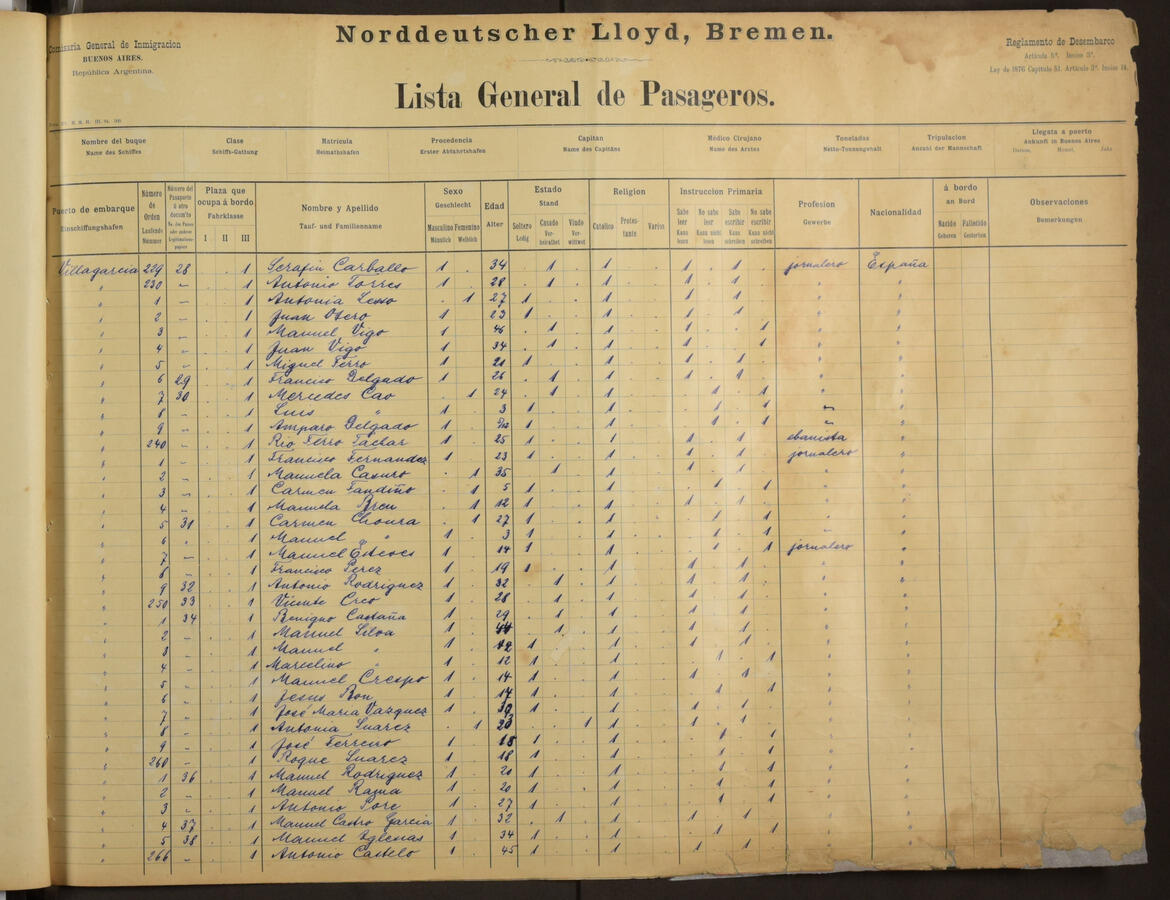 Norddeutscher Lloyd, Bremen.
Comisaria General de Inmigracion
BUENOS AIRES.
República Argentina.
Reglamento de Desembarco
Artículo 5º. Inciso 3º.
Ley de 1876 Capítulo 51. Artículo 3º. Inciso 14.
Lista General de Pasageros.
Nombre del buque Clase Matrícula Procedencia Capitan Médico Cirujano Toneladas Tripulacion Llegata a puerto
Name des Schiffes Schiffs-Gattung Heimathshafen Erster Abfahrtshafen Name des Capitäns Name des Arztes Netto-Tonnengehalt Anzahl der Mannschaft Ankunft in Buenos Aires
Datum, Monat, Jahr
Puerto de embarque Einschiffungshafen Número de Orden Laufende Nummer Número del Pasaporte ú otro documto Plaza que ocupa á bordo Fahrklasse I II III Nombre y Apellido Tauf- und Familienname Sexo Geschlecht Masculino Männlich Femenino Weiblich Edad Alter Estado Stand Soltero Ledig Casado Verheirathet Viudo Verwittwet Religion Católico Protestante Varios Instruccion Primaria Sabe leer Kann lesen No sabe leer Kann nicht lesen Sabe escribir Kann schreiben No sabe escribir Kann nicht schreiben Profesion Gewerbe Nacionalidad á bordo an Bord Nacido Geboren Fallecido Gestorben Observaciones Bemerkungen
Villagarcia 229 28 1 Serafin Carballo 1 34 1 1 1 1 jornalero España
" 230 - 1 Antonio Torres 1 28 1 1 1 1 " "
" 1 - 1 Antonia 1 27 1 1 1 1 " "
" 2 - 1 Juan Otero 1 23 1 1 1 1 " "
" 3 - 1 Manuel Vigo 1 46 1 1 1 1 " "
" 4 - 1 Juan Vigo 1 34 1 1 1 1 " "
" 5 - 1 Miguel Ferro 1 21 1 1 1 1 " "
" 6 29 1 Francisco Delgado 1 26 1 1 1 1 " "
" 7 30 1 Mercedes Cao 1 24 1 1 1 1 " "
" 8 - 1 Luis " 1 3 1 1 1 1 - "
" 9 - 1 Amparo Delgado 1 1 1 1 1 - "
" 240 - 1 Rio Ferro 1 25 1 1 1 1 ebanista "
" 1 - 1 Francisco Fernandez 1 23 1 1 1 1 jornalero "
" 2 - 1 Manuela 1 35 1 1 1 1 " "
" 3 - 1 Carmen Fandiño 1 5 1 1 1 1 "
" 4 - 1 Manuela 1 12 1 1 1 1 "
" 5 31 1 Carmen 1 27 1 1 1 1 "
" 6 " 1 Manuel " 1 3 1 1 1 1 - "
" 7 - 1 Manuel 1 14 1 1 1 1 jornalero "
" 8 - 1 Francisco Perez 1 19 1 1 1 1 " "
" 9 32 1 Antonio Rodriguez 1 32 1 1 1 1 " "
" 250 33 1 Vicente Creo 1 28 1 1 1 1 " "
" 1 34 1 Benigno Castaña 1 29 1 1 1 1 " "
" 2 - 1 Manuel Silva 1 44 1 1 1 1 " "
" 3 - 1 Manuel " 1 1 1 1 1 " "
" 4 - 1 Marcelino " 1 12 1 1 1 1 " "
" 5 - 1 Manuel Crespo 1 14 1 1 1 1 " "
" 6 - 1 Jesus Ron 1 17 1 1 1 1 " "
" 7 - 1 José Maria Vazquez 1 1 1 1 1 " "
" 8 - 1 Antonia Suarez 1 1 1 1 1 " "
" 9 - 1 José Ferreiro 1 18 1 1 1 1 " "
" 260 - 1 Roque Suarez 1 18 1 1 1 1 " "
" 1 36 1 Manuel Rodriguez 1 21 1 1 1 1 " "
" 2 - 1 Manuel Rama 1 20 1 1 1 1 " "
" 3 - 1 Antonio 1 27 1 1 1 1 " "
" 4 37 1 Manuel Castro Garcia 1 32 1 1 1 1 " "
" 5 38 1 Manuel Iglesias 1 34 1 1 1 1 " "
" 266 - 1 Antonio Castelo 1 45 1 1 1 1 " "